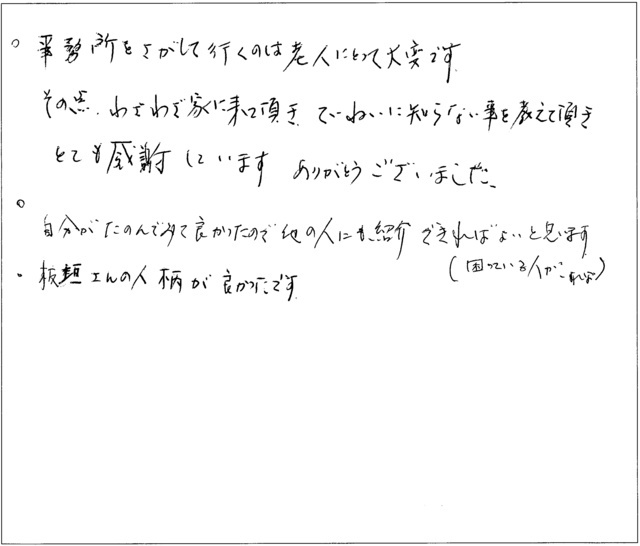 ○ 事務所をさがして行くのは老人にとって大変です
その点、わざわざ家に来て頂き ていねいに知らない事を教えて頂き
とても感謝しています ありがとうございました。
○
自分がたのんでみて良かったので他の人にも紹介できればよいと思います
(困っている人がいれば)
・板垣さんの人柄が良かったです